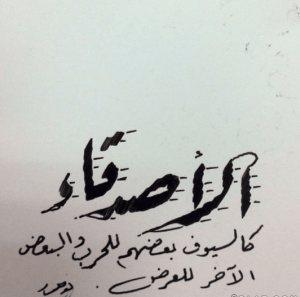 الأصدقاء
كالسيوف بعضهم للحرب والبعض
الآخر للعرض.